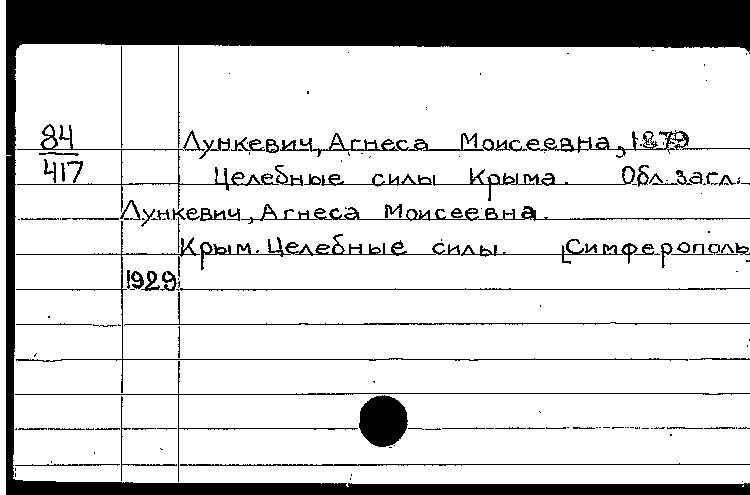 84
417
Лункевич, Агнеса Моисеевна, 1879
Целебные силы Крыма. Обл. загл.
Лункевич, Агнеса Моисеевна.
Крым. Целебные силы. [Симферополь
1929